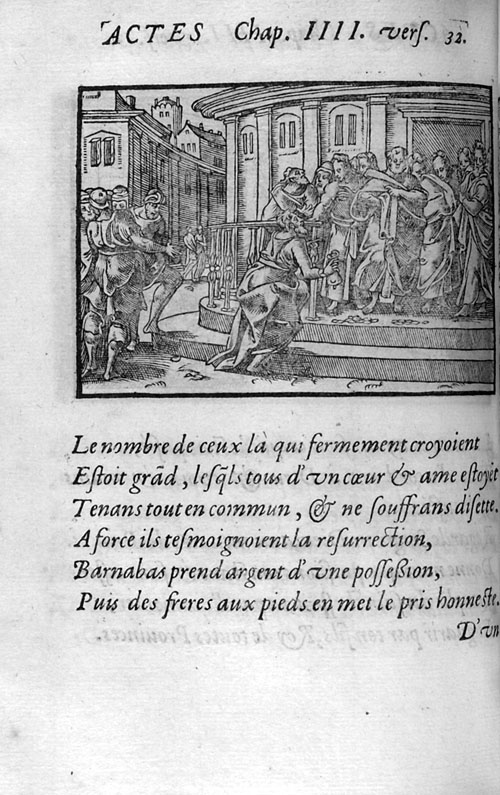 ACTES Chap. IIII. vers. 32.
Le nombre de ceux là qui fermement croyoient
Estoit grãd, lesq̃ls tous d'vn cœur & ame estoyẽt
Tenans tout en commun, & ne souffrans disette.
A force ils tesmoignoient la resurrection,
Barnabas prend argent d'vne possession,
Puis des freres aux pieds en met le pris honneste.
D'vn